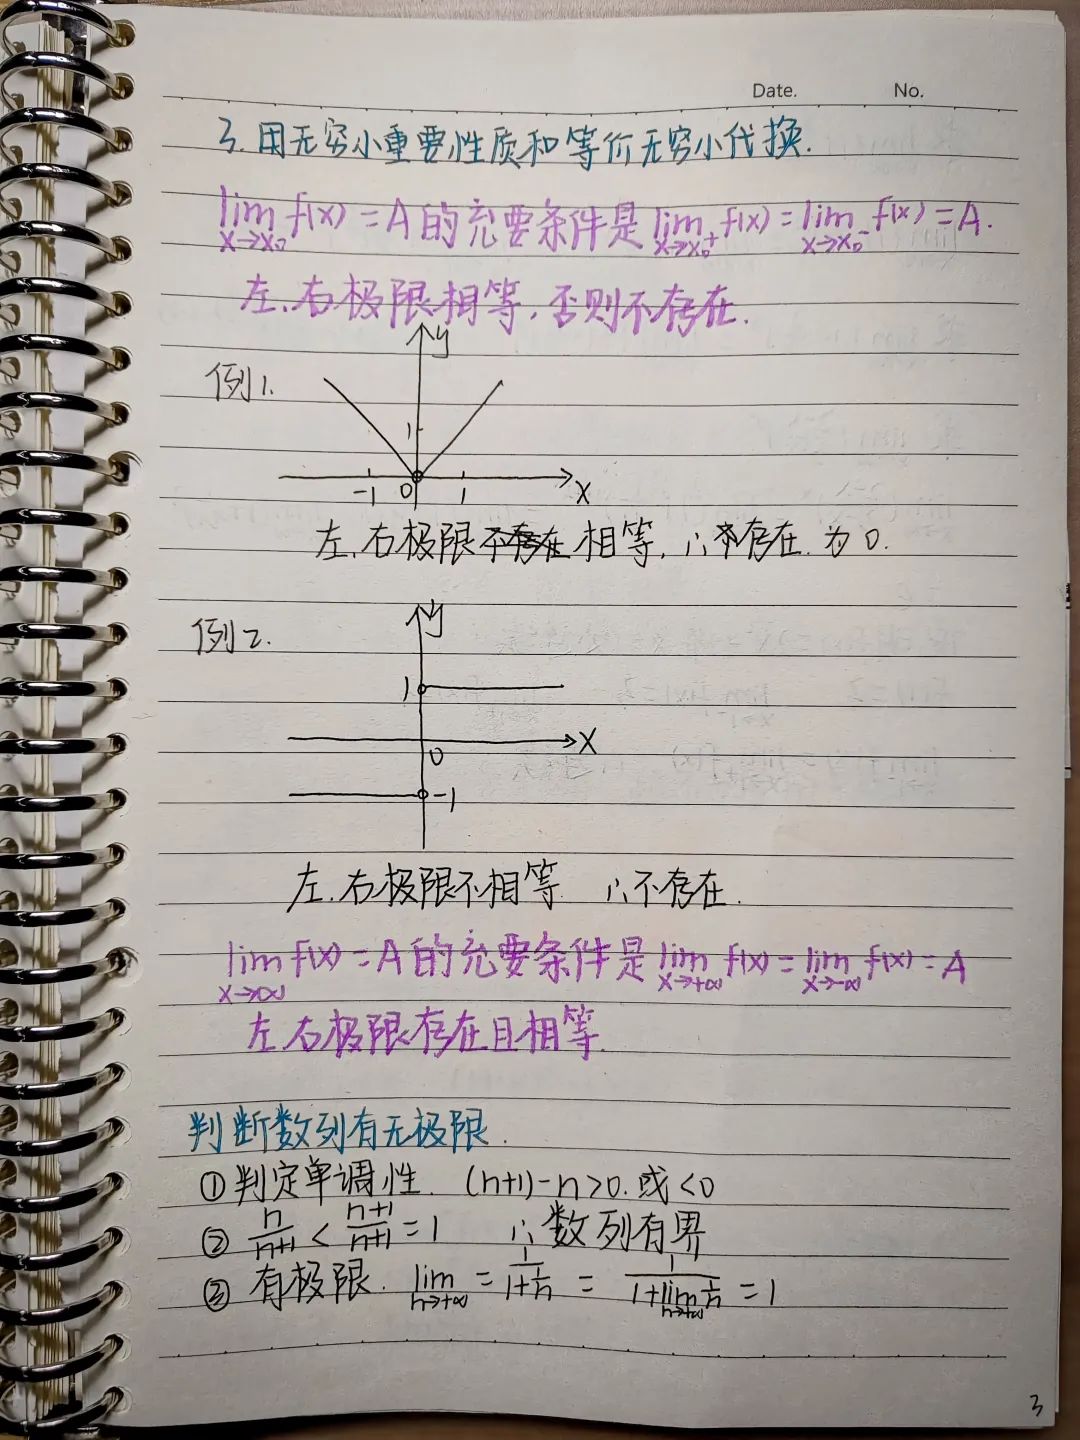 Date. No.
3. 用无穷小重要性质和等价无穷小代换.
lim x→x₀ f(x) = A 的充要条件是 lim x→x₀⁺ f(x) = lim x→x₀⁻ f(x) = A.
左、右极限相等, 否则不存在.
y
例1.
1
-1 0 1 x
左、右极限不存在相等, ∴不存在. 为0.
y
例2.
1
x
0
-1
左、右极限不相等 ∴不存在.
lim x→∞ f(x) = A 的充要条件是 lim x→+∞ f(x) = lim x→-∞ f(x) = A
左右极限存在且相等.
判断数列有无极限.
① 判定单调性. (n+1)-n>0. 或<0
② n/(n+1) < (n+1)/(n+1) = 1 ∴数列有界
③ 有极限. lim n→+∞ = 1/(1+1/n) = 1/(1+lim n→+∞ 1/n) = 1
3